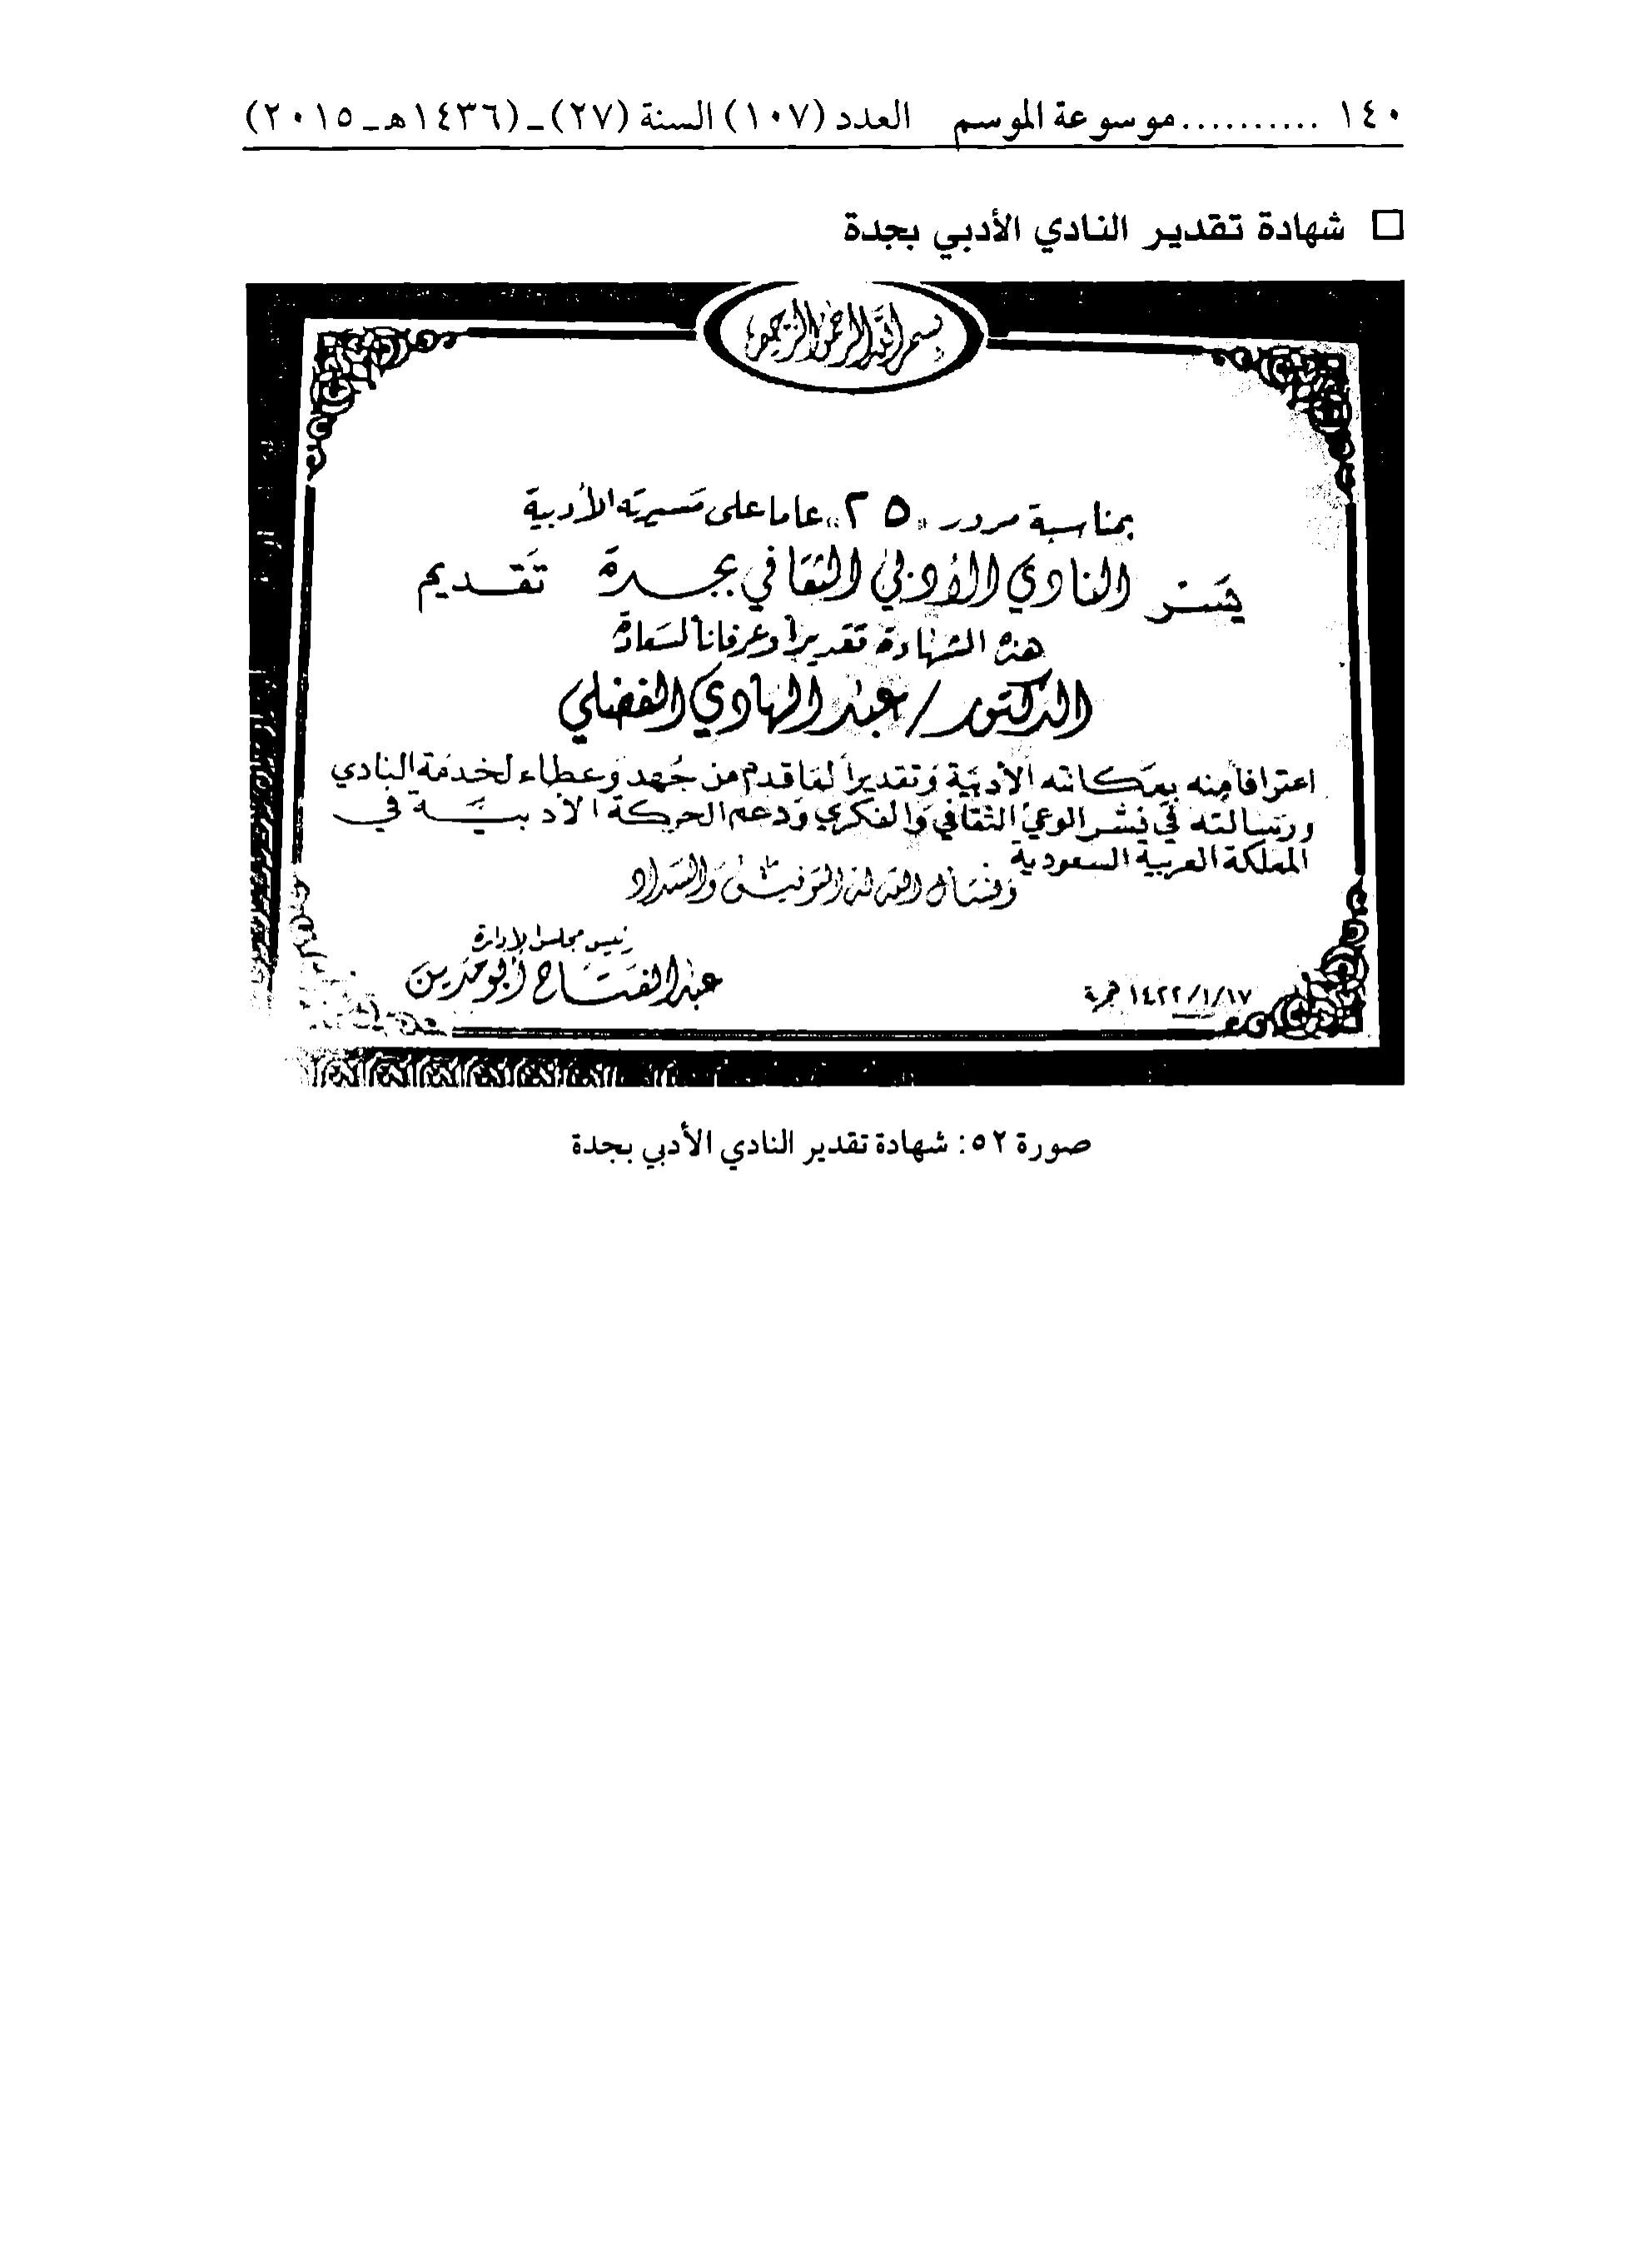 ١٤٠ ..........موسوعة الموسم العدد (١٠٧) السنة (٢٧)ـ(١٤٣٦هـ ـ ٢٠١٥)
□ شهادة تقدير النادي الأدبي بجدة
بسم الله الرحمن الرحيم
بمناسبة مرور «٢٥» عاما على مسيرته الأدبية
يسر النادي الأدبي الثقافي بجدة تقديم
هذه الشهادة تقديراً وعرفاناً لسعادة
الدكتور/عبد الهادي الفضلي
اعترافا منه بمكانته الأدبية وتقديراً لما قدم من جهد وعطاء لخدمة النادي
ورسالته في نشر الوعي الثقافي والفكري ودعم الحركة الأدبية في
المملكة العربية السعودية
ونسأل الله له التوفيق والسداد
رئيس مجلس الإدارة
عبد الفتاح أبو مدين
١٤٢٢/١/١٧ هجرية
صورة ٥٢: شهادة تقدير النادي الأدبي بجدة